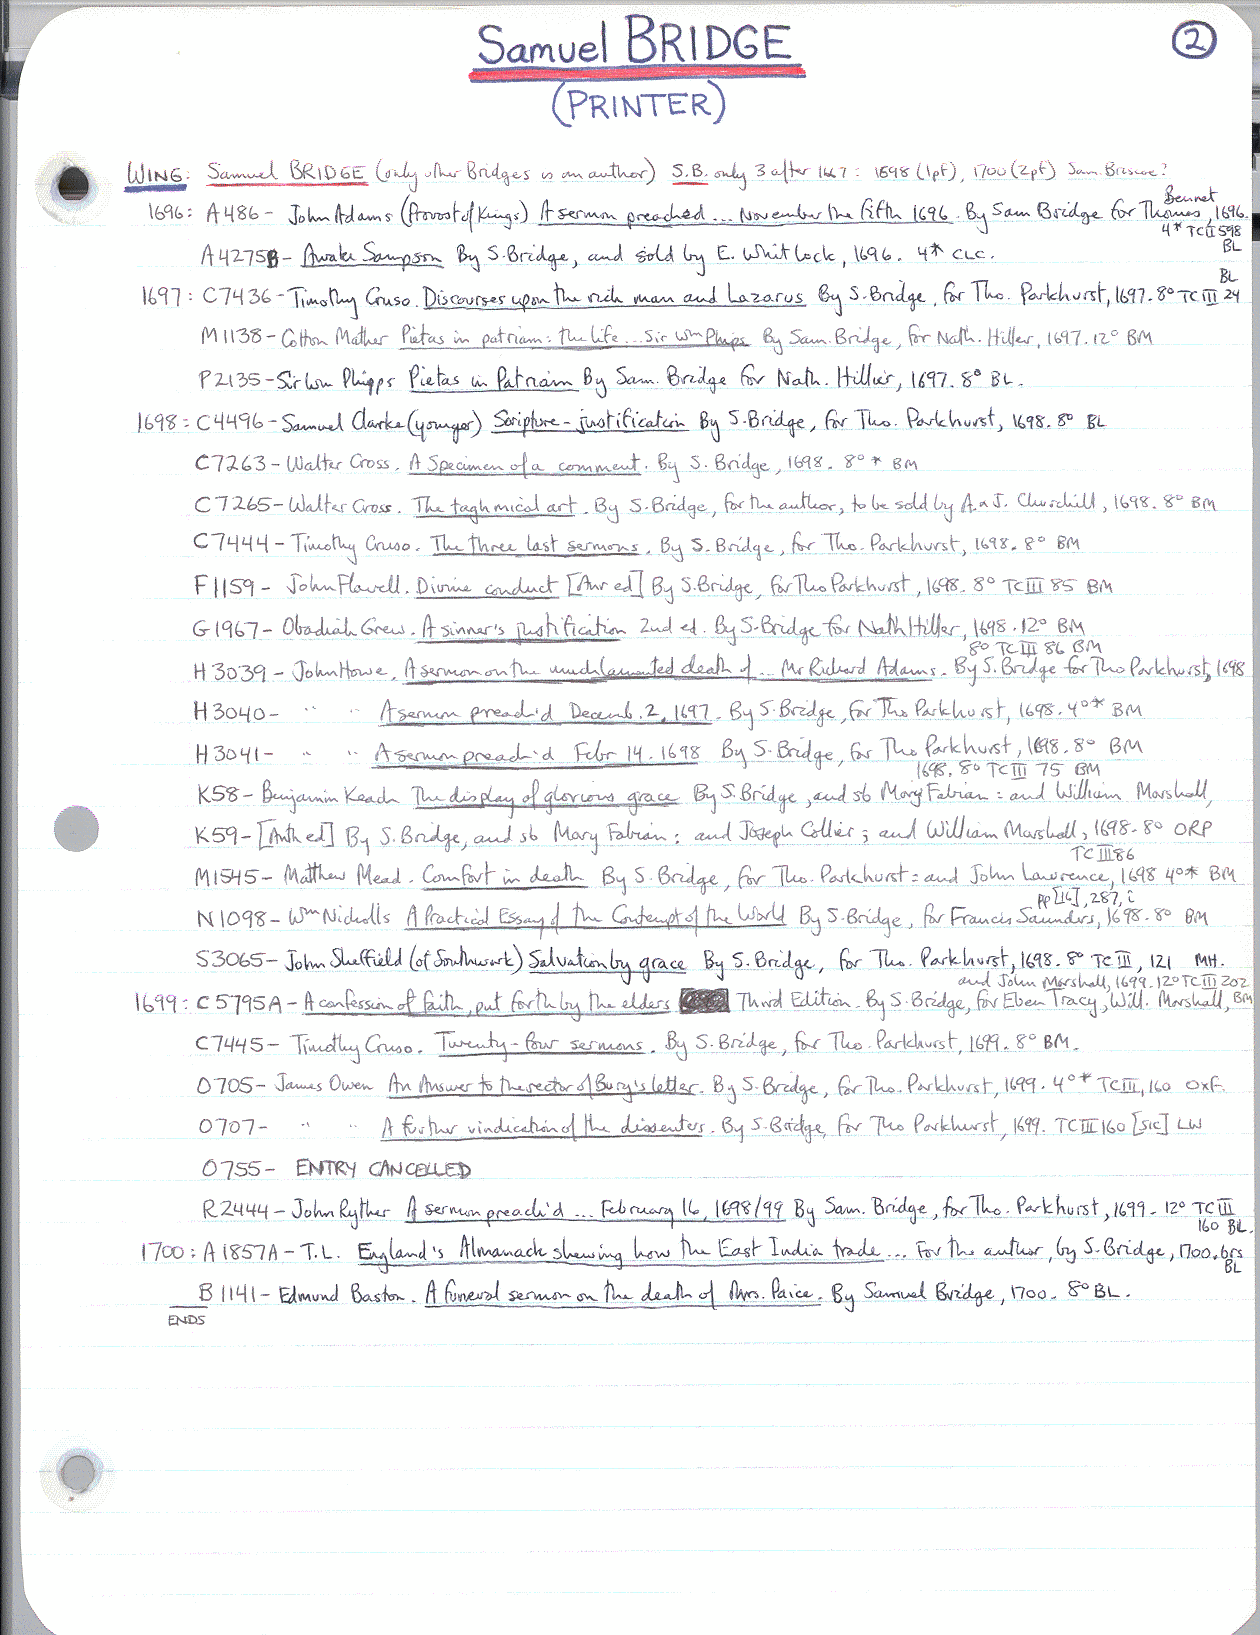 Samuel BRIDGE
2
(PRINTER)
WING: Samuel BRIDGE (only other Bridges is an author) S.B. only 3 after 1667: 1698 (1pf), 1700 (2pf) Sam. Briscoe?
Bennet
1696: A486- John Adams (Provost of Kings) A sermon preached... November the fifth 1696. By Sam Bridge for Thomas, 1696.
4* TCII 598
BL
A4275B- Awake Sampson By S. Bridge, and sold by E. Whitlock, 1696. 4* CLC.
BL
1697: C7436- Timothy Cruso. Discourses upon the rich man and Lazarus By S. Bridge, for Tho. Parkhurst, 1697. 8° TCIII 24
M1138- Cotton Mather Pietas in patriam: the life... Sir Wm Phips By Sam. Bridge, for Nath. Hiller, 1697. 12° BM
P2135- Sir Wm Phipps Pietas in Patriam By Sam. Bridge for Nath. Hillier, 1697. 8° BL.
1698: C4496- Samuel Clarke (younger) Scripture-justification By S. Bridge, for Tho. Parkhurst, 1698. 8° BL
C7263- Walter Cross. A Specimen of a comment. By S. Bridge, 1698. 8°* BM
C7265- Walter Cross. The taghmical art. By S. Bridge, for the author, to be sold by A. a J. Churchill, 1698. 8° BM
C7444- Timothy Cruso. The three last sermons. By S. Bridge, for Tho. Parkhurst, 1698. 8° BM
F1159- John Flavell. Divine conduct [Anr ed] By S. Bridge, for Tho Parkhurst, 1698. 8° TCIII 85 BM
G1967- Obadiah Grew. A sinner's justification 2nd ed. By S. Bridge for Nath Hiller, 1698. 12° BM
8° TCIII 86 BM
H3039- John Howe. A sermon on the much lamented death of... Mr Richard Adams. By S. Bridge for Tho Parkhurst, 1698
H3040- " " A sermon preach'd Decemb. 2, 1697. By S. Bridge, for Tho Parkhurst, 1698. 4°* BM
H3041- " " A sermon preach'd Febr 14. 1698 By S. Bridge, for Tho Parkhurst, 1698. 8° BM
1698. 8° TCIII 75 BM
K58- Benjamin Keach The display of glorious grace By S. Bridge, and sb Mary Fabian: and William Marshall,
K59- [Anth ed] By S. Bridge, and sb Mary Fabian: and Joseph Collier; and William Marshall, 1698. 8° ORP
TCIII 86
M1545- Matthew Mead. Comfort in death By S. Bridge, for Tho. Parkhurst: and John Lawrence, 1698 4°* BM
pp [16], 287, i
N1098- Wm Nicholls A Practical Essay of the Contempt of the World By S. Bridge, for Francis Saunders, 1698. 8° BM
S3065- John Sheffield (of Southwark) Salvation by grace By S. Bridge, for Tho. Parkhurst, 1698. 8° TCIII, 121 MH.
and John Marshall, 1699. 12° TCIII 202
1699: C5795A- A confession of faith, put forth by the elders Third Edition. By S. Bridge, for Eben Tracy, Will. Marshall, BM
C7445- Timothy Cruso. Twenty-four sermons. By S. Bridge, for Tho. Parkhurst, 1699. 8° BM.
O705- James Owen An Answer to the rector of Bury's letter. By S. Bridge, for Tho. Parkhurst, 1699. 4°* TCIII, 160 OXF.
O707- " " A further vindication of the dissenters. By S. Bridge, for Tho Parkhurst, 1699. TCIII 160 [sic] LW
O755- ENTRY CANCELLED
R2444- John Ryther A sermon preach'd... February 16, 1698/99 By Sam. Bridge, for Tho. Parkhurst, 1699. 12° TCIII
160 BL.
1700: A1857A- T.L. England's Almanack shewing how the East India trade... For the author, by S. Bridge, 1700. brs
BL
B1141- Edmund Baston. A funeral sermon on the death of Mrs. Paice. By Samuel Bridge, 1700. 8° BL.
ENDS